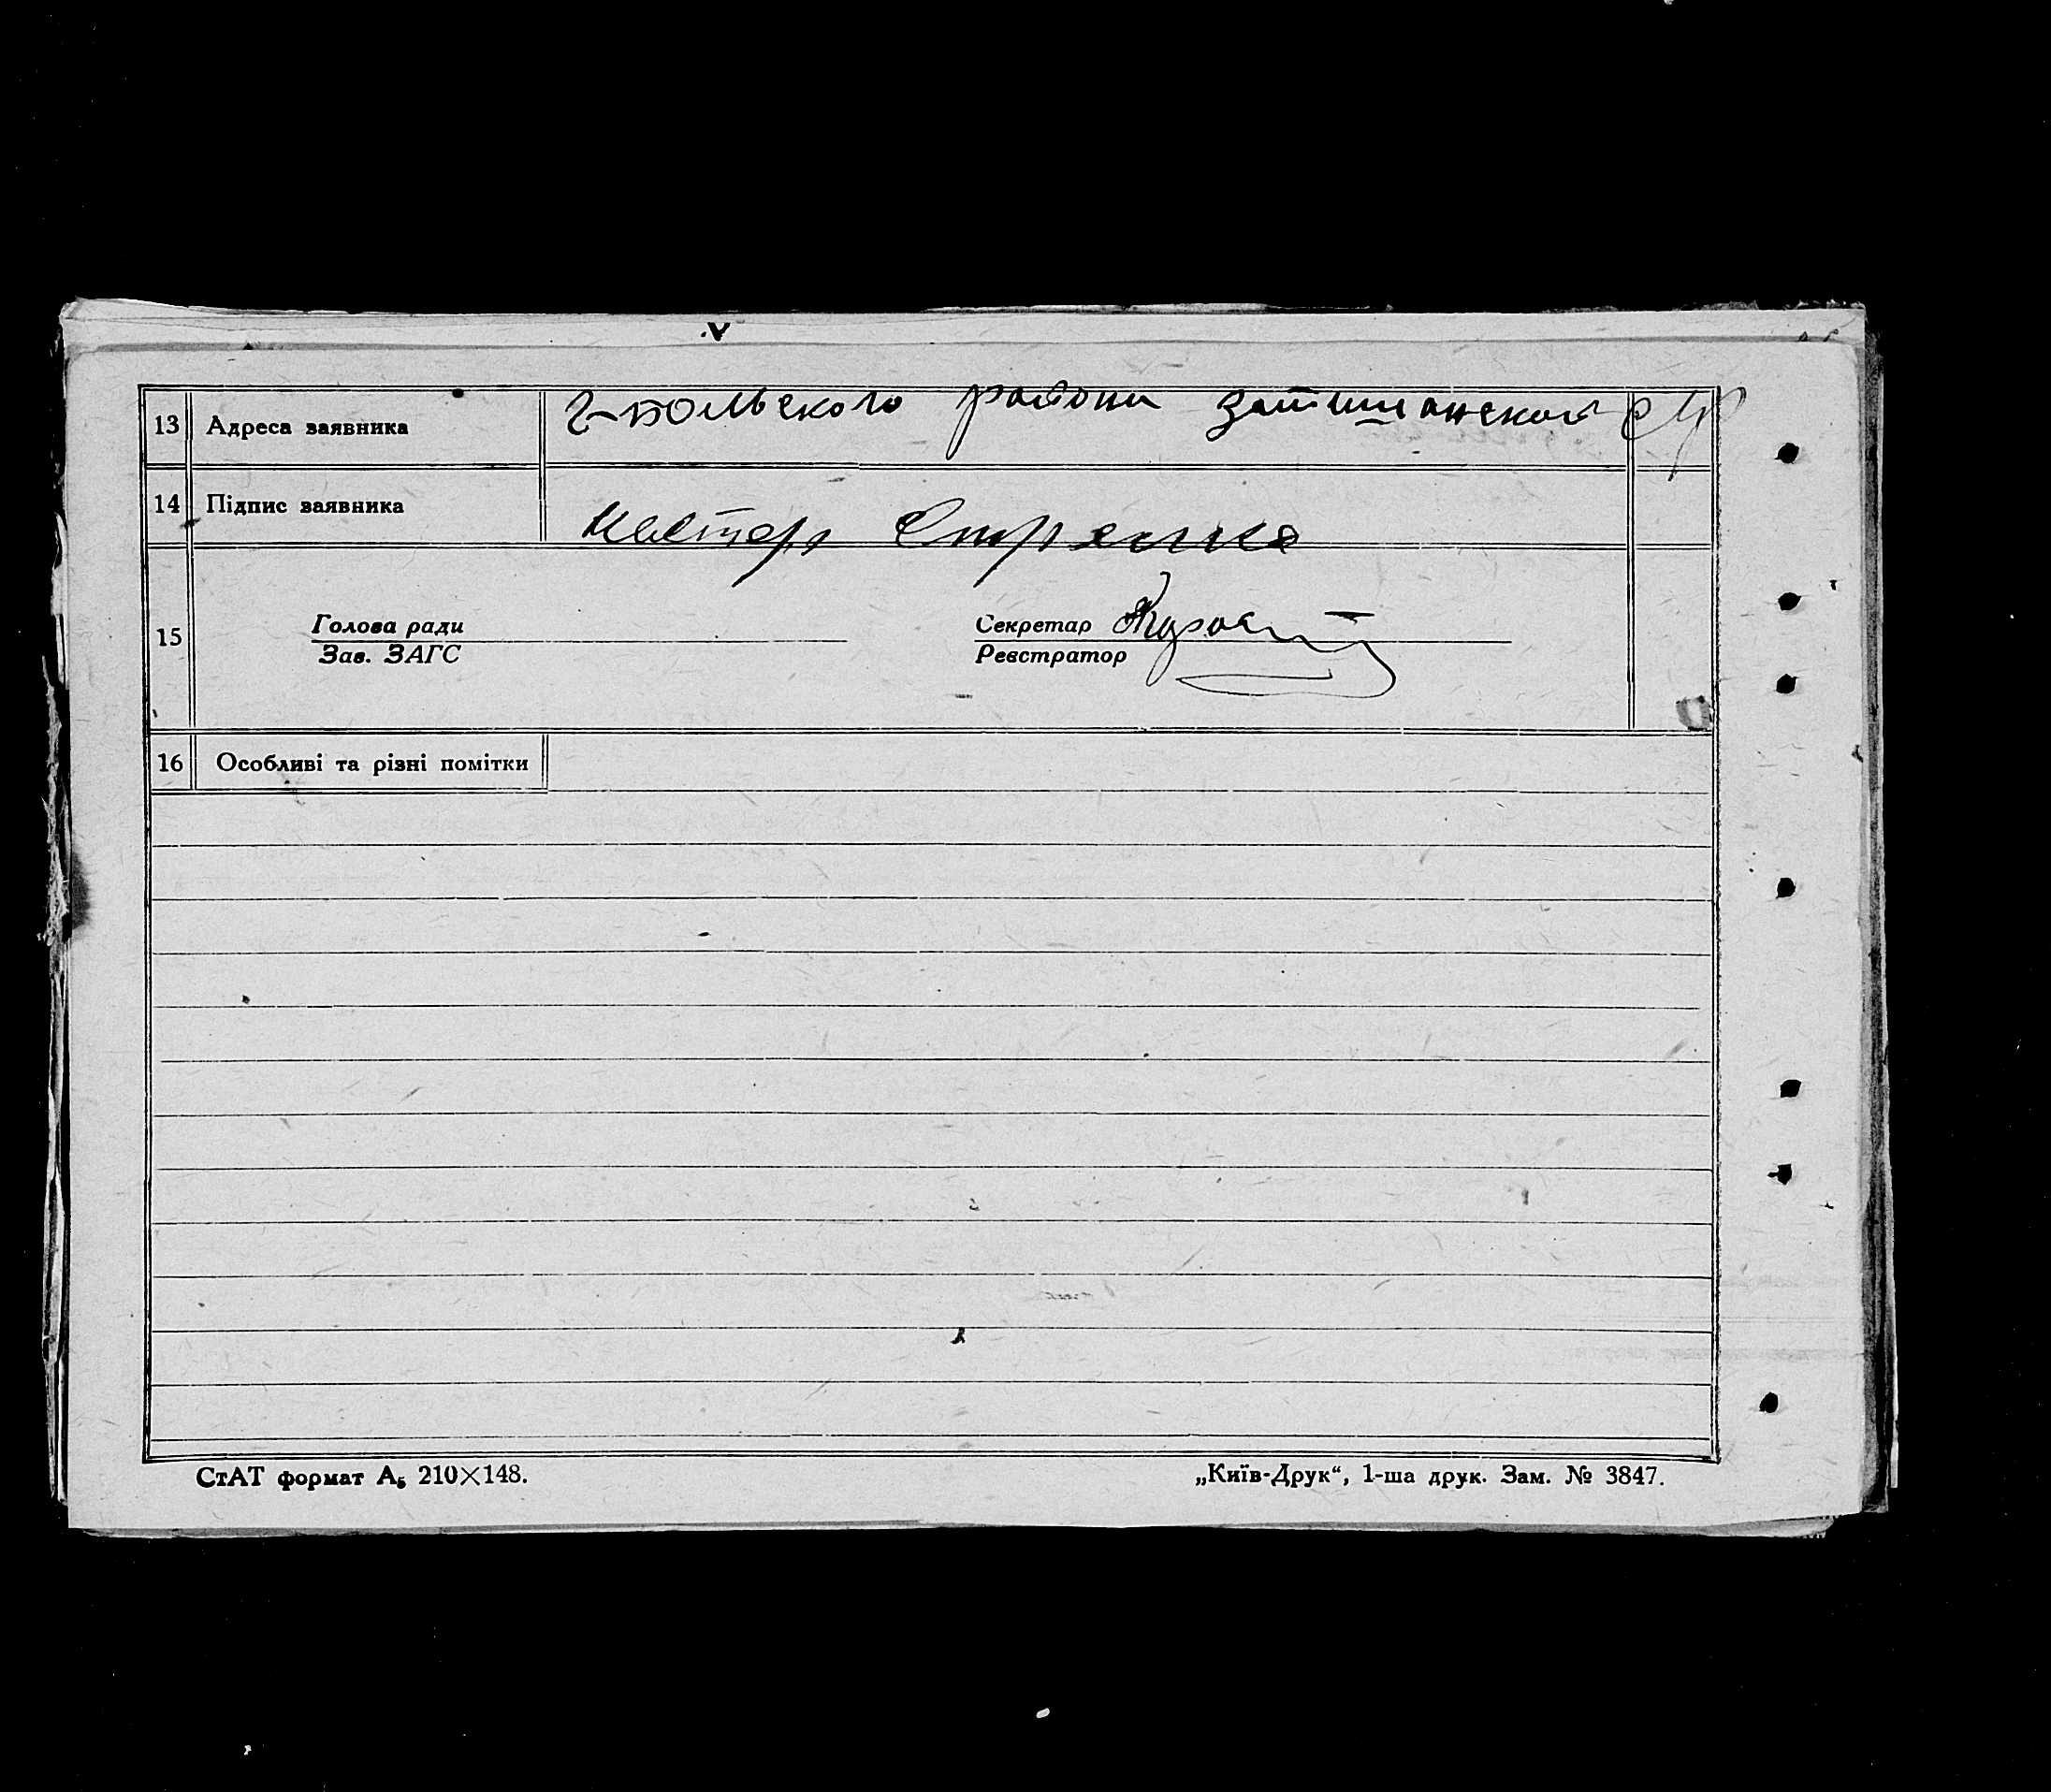 13 Адреса заявника Г-польського района затишанского с/р
14 Підпис заявника Нестер
15 Голова ради Секретар
Зав. ЗАГС Реєстратор
16 Особливі та різні помітки
СтАТ формат А5 210×148. „Київ-Друк“, 1-ша друк. Зам. № 3847.